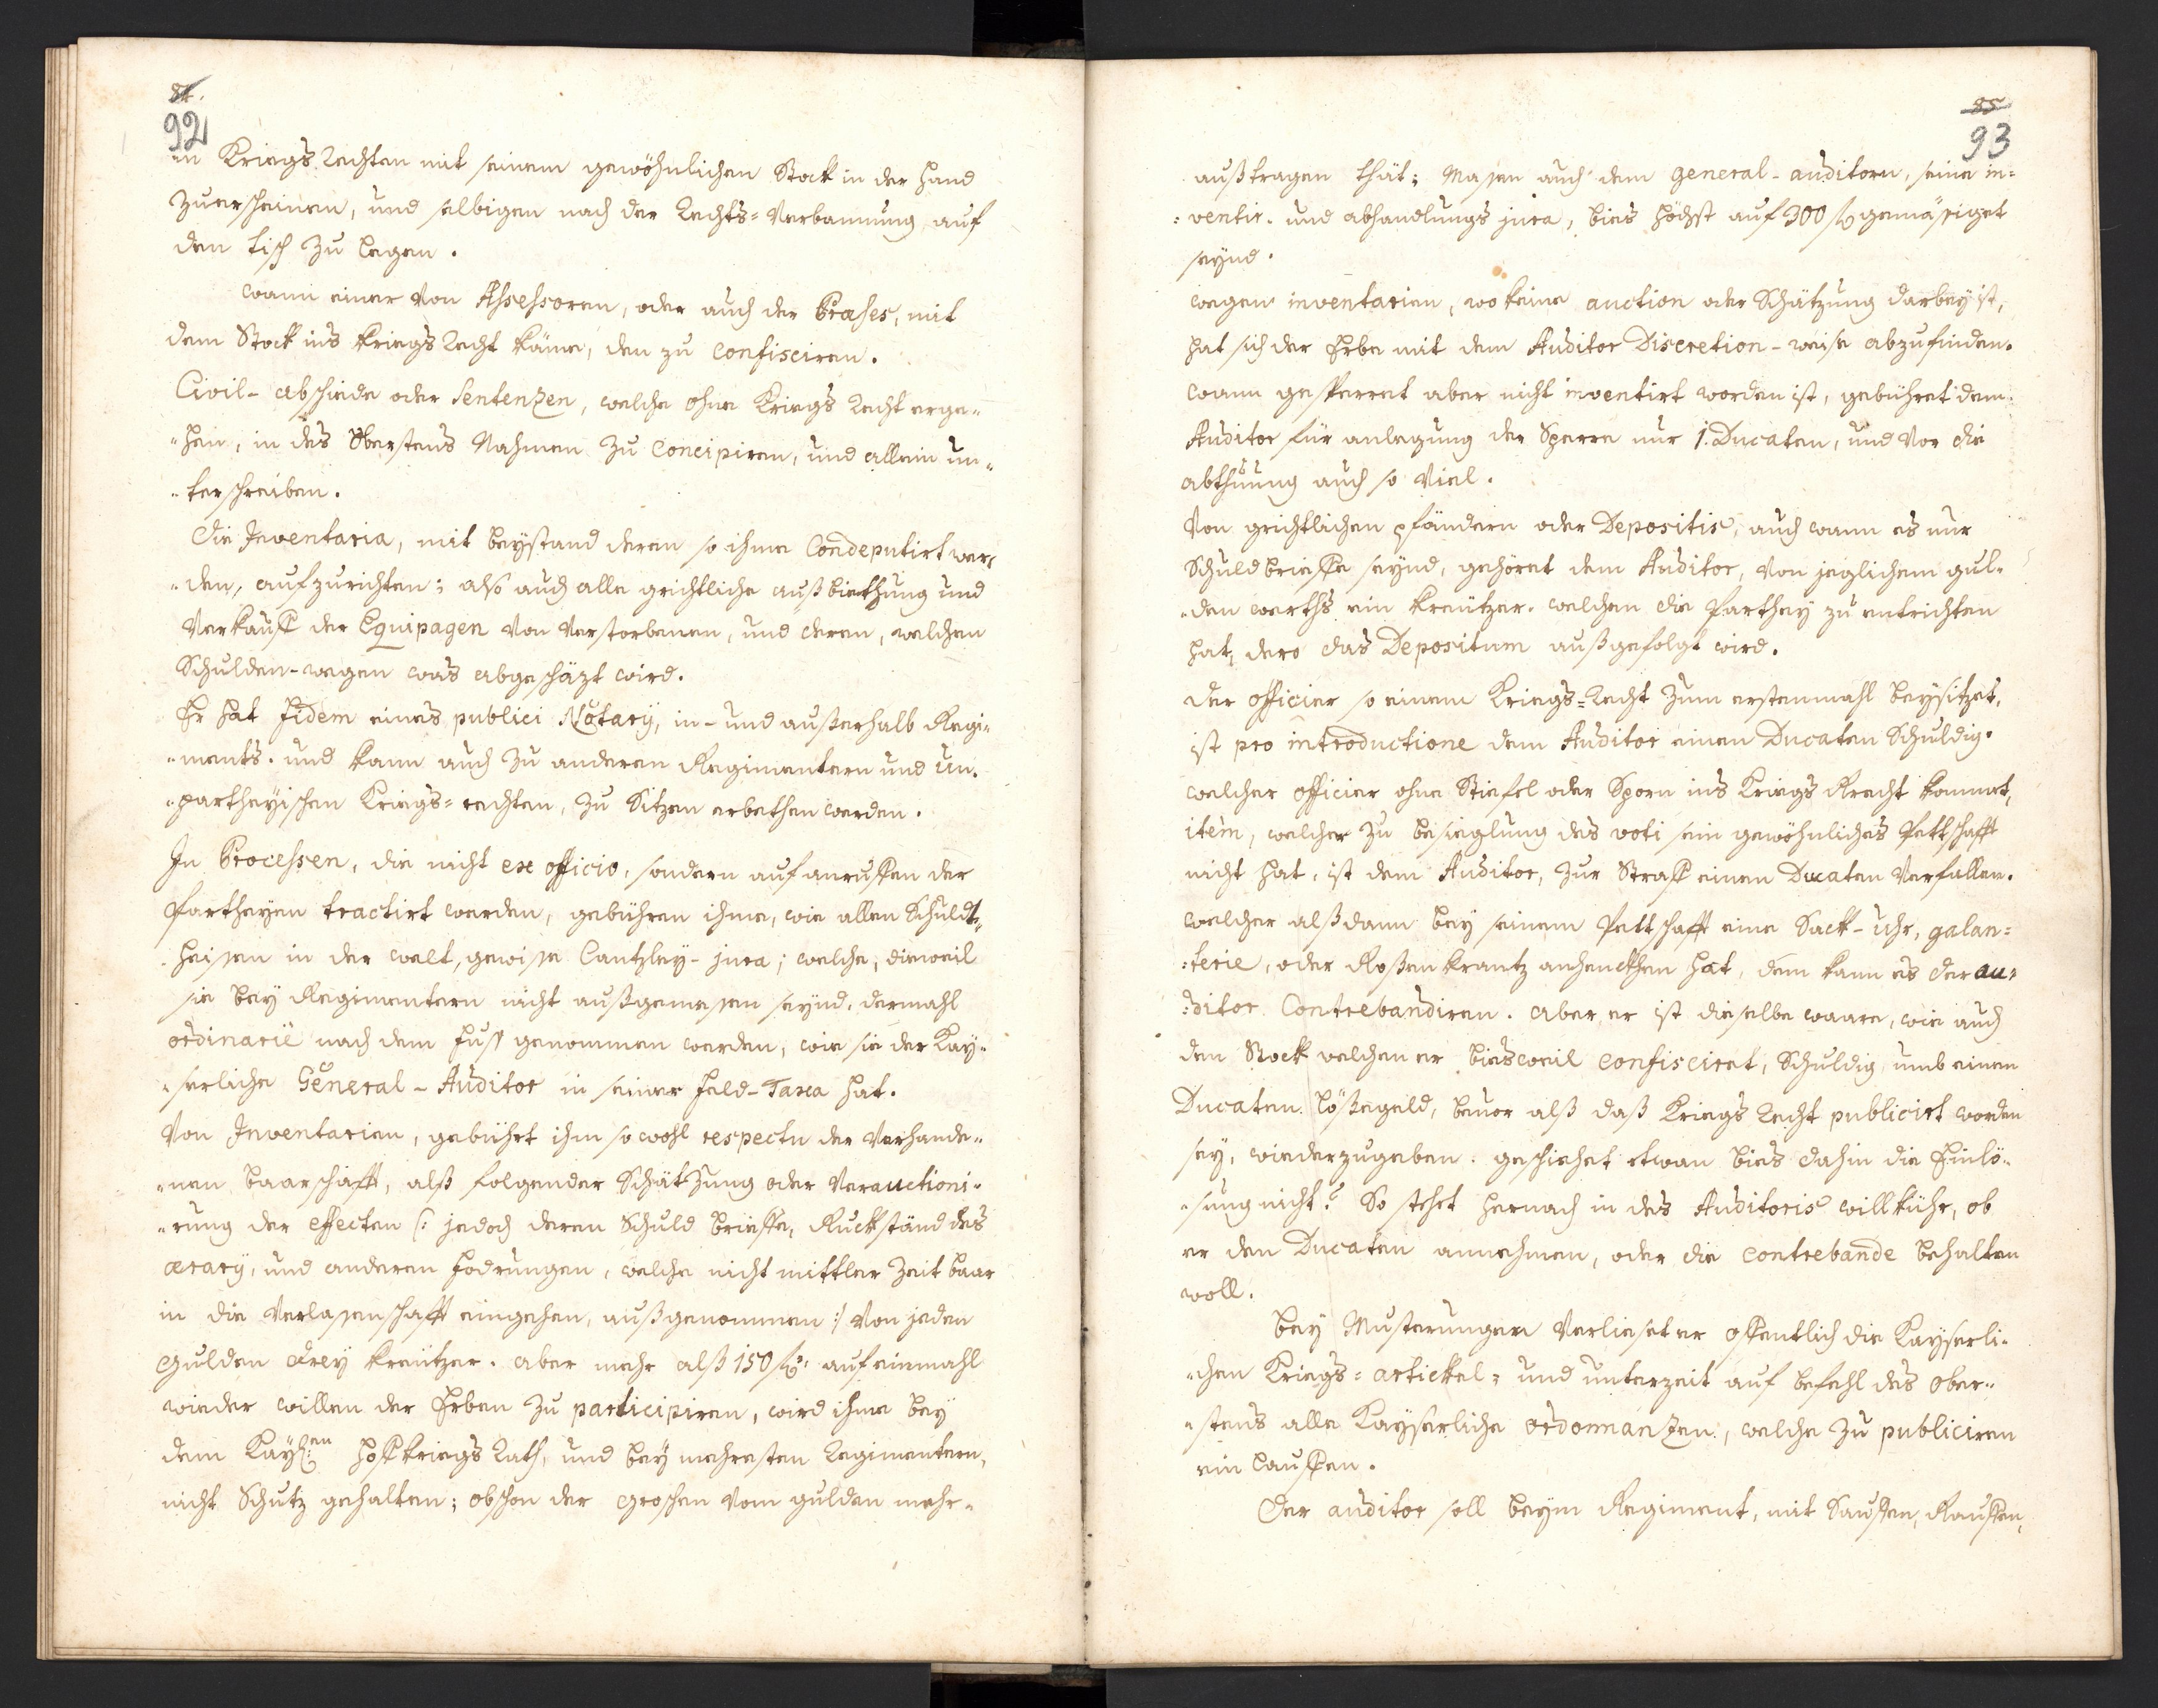 84.
92
in Kriegs Rechten mit seinem gewöhnlichen Stock in der Hand
zuerscheinen, und selbigen nach der Rechts=Verbannung auf
den tisch zu legen.
wann einer von Assessoren, oder auch der Præses, mit
dem Stock ins Kriegs Recht käme, den zu confisciren.
Civil-abschiede oder Sentenzen, welche ohne Kriegs Recht erge„
„hen, in des Oberstens Nahmen zu Concipiren, und allein un„
„terschreiben.
Die Inventaria, mit beystand deren so ihme Condeputirt wer„
„den, aufzurichten; alß auch alle grichtliche außbiethung und
Verkauff der Equipagen von verstorbenen, und deren, welchen
Schulden-wegen was abgeschäzt wird.
Er hat fidem eines publici Notarÿ, in- und außerhalb Regi„
„ments. und kann auch zu anderen Regimentern und Un„
„partheyischen Kriegs=rechten, zu Sitzen erbethen werden.
In Processen, die nicht ex officio, sondern auf anruffen der
Partheyen tractirt werden, gebühren ihme, wie allen Schuldt„
„heissen in der welt, gewisse Cantzley-jura; welche, dieweil
sie bey Regimentern nicht außgemessen seynd, dermahl
ordinariè nach dem Fuss genommen werden, wie sie der Kay„
„serliche General-Auditor in seiner Feld-Taxa hat.
Von Inventarien, gebührt ihm so wohl respectu der Verhande„
„nen baarschafft, alß folgender Schätzung oder Verauctioni„
„rung der effecten /: jedoch deren Schuld brieffe, Ruckständ des
ærarÿ, und anderen fodrungen, welche nicht mittler Zeit baar
in die Verlassenschafft eingehen, außgenommen :/ Von jeden
Gulden drey kreützer. aber mehr alß 150 f. auf einmahl
wieder willen der Erben zu participiren, wird ihme bey
dem Kays:en Hoffkriegs Rath, und bey mehresten Regimentern,
nicht Schutz gehalten; obschon der groschen vom gulden mehr„
85
93
außtragen thät; Massen auch dem general-auditorn, seine in=
=ventir- und abhandlungs jura, bies höchst auf 300 f. gemässiget
seynd.
wegen inventarien, wo keine auction oder Schätzung darbey ist,
hat sich der Erbe mit dem Auditor Discretion-weise abzufinden.
wann gesperret aber nicht inventirt worden ist, gebühret dem
Auditor für anlegung der Sperre nur 1. Ducaten, und vor die
abthuung auch so viel.
Von grichtlichen pfändern oder Depositis, auch wann es nur
Schuldbrieffe seynd, gehöret dem Auditor, von jeglichem gul„
„den werths ein kreützer. welchen die Parthey zu entrichten
hat, dero das Depositum außgefolgt wird.
Der officier so einem Kriegs=Recht zum erstenmahl beysitzet,
ist pro introductione dem Auditor einen Ducaten Schuldig.
welcher officier ohne Stiefel oder Sporn ins Kriegs Recht kommet,
item, welcher zu besieglung des voti sein gewöhnliches Pettschafft
nicht hat, ist dem Auditor, zur Straff einen Ducaten Verfallen.
welcher alßdann bey seinem Pettschafft eine Sack-Uhr, galan=
=terie, oder Rosenkrantz anhencken hat, dem kann es der au=
=ditor Contrebandiren. aber er ist dieselbe waare, wie auch
den Stock welchen er bieweil confisciret, Schuldig umb einen
Ducaten lößegeld, bevor alß daß Kriegs Recht publicirt worden
sey, wiederzugeben. geschiehet etwan bies dahin die Einlö„
„sung nicht? So stehet hernach in des Auditoris willkühr, ob
er den Ducaten annehmen, oder die contrebande behalten
woll.
bey Musterungen Verlieset er offentlich die Kayserli„
„chen Kriegs=artickel= und unterzeit auf befehl des Ober„
„stens alle Kayserliche ordonnanzen, welche zu publiciren
ein lauffen.
Der auditor soll beym Regiment, mit Sauffen, Rauffen,